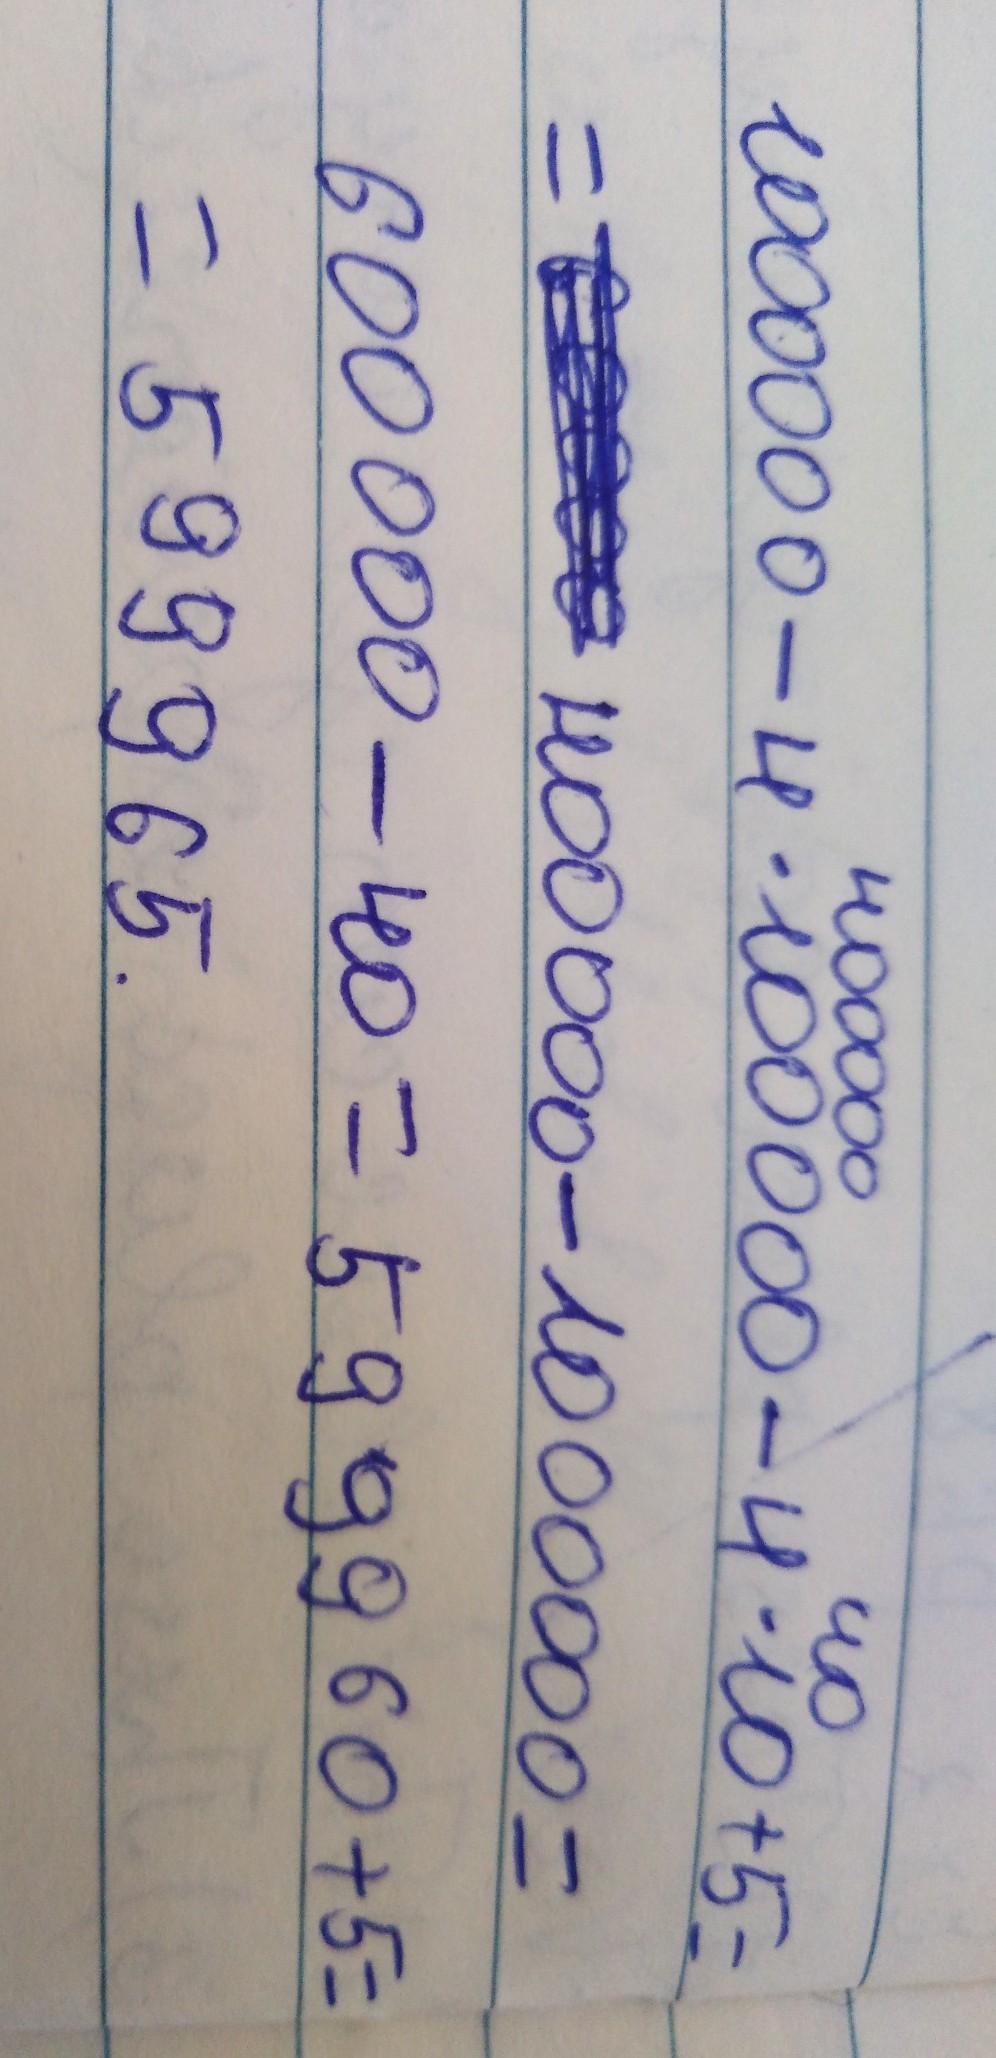 400000 40
1000000-4·100000-4·10+5=
= 400000-1000000=
600000-40=599960+5=
=599965.